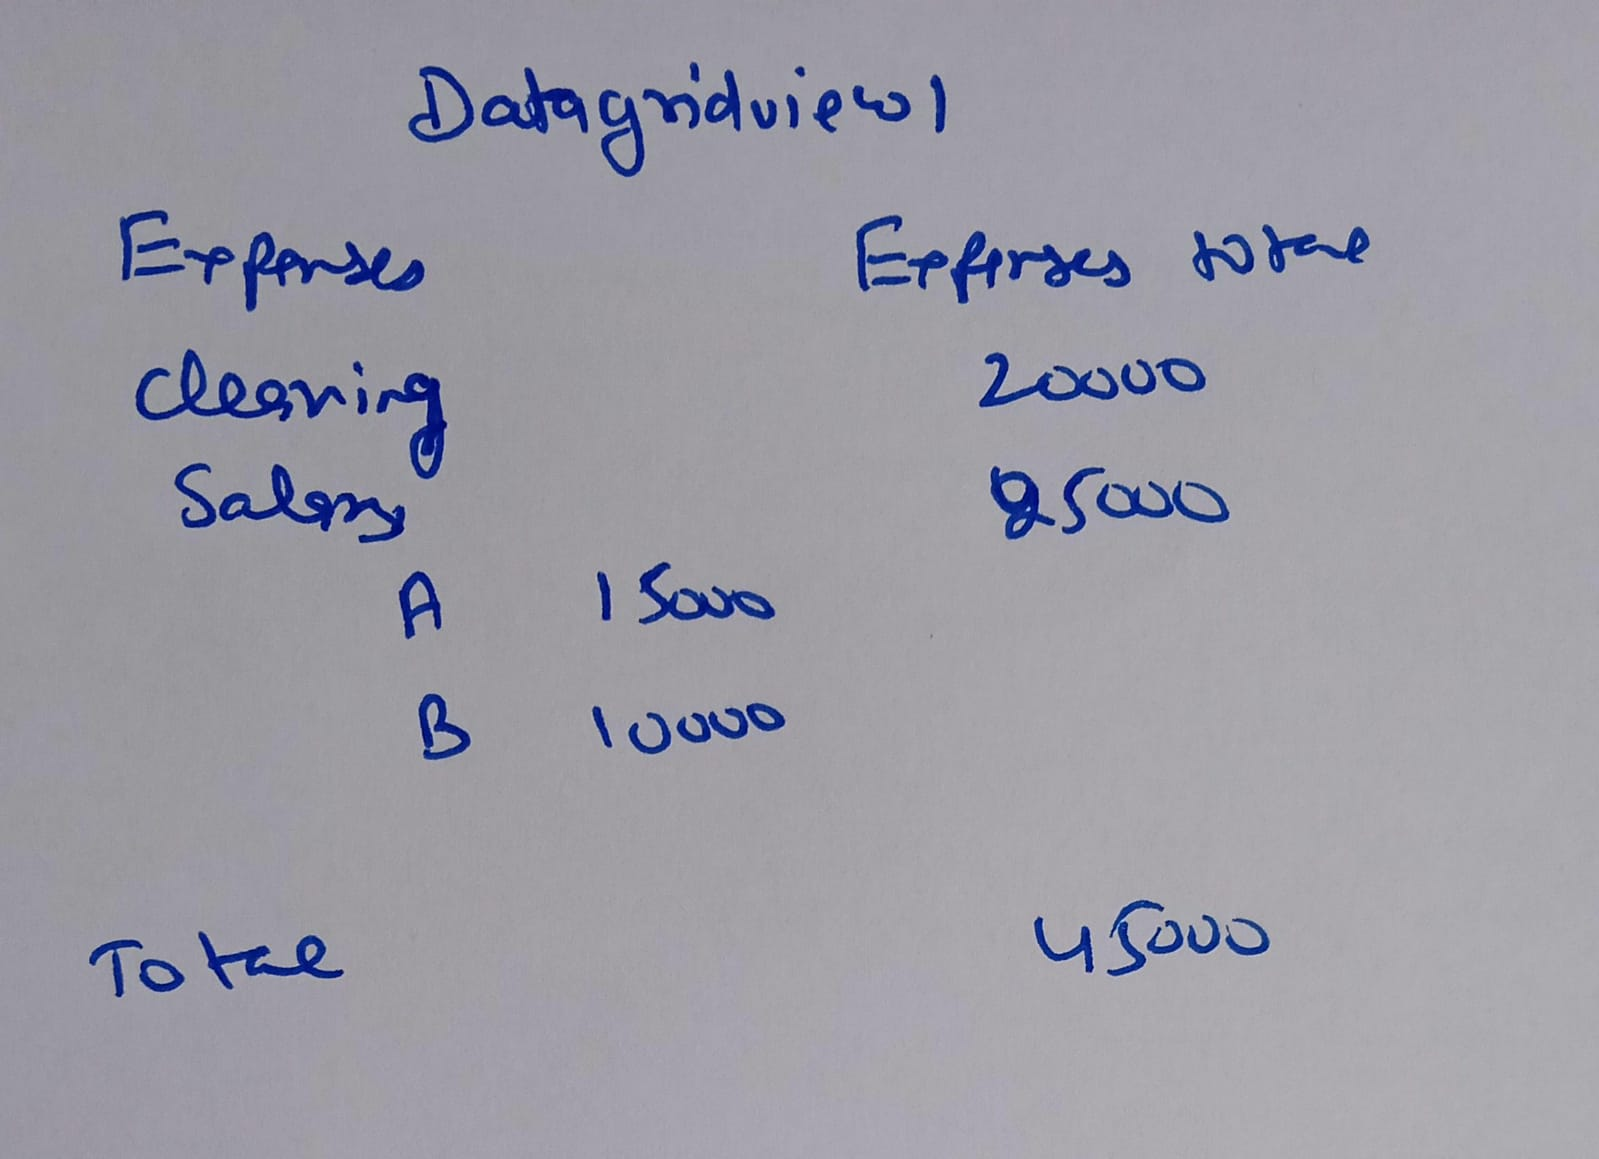 Datagridview1
Expenses Expenses total
cleaning 20000
Salary 25000
A 15000
B 10000
Total 45000